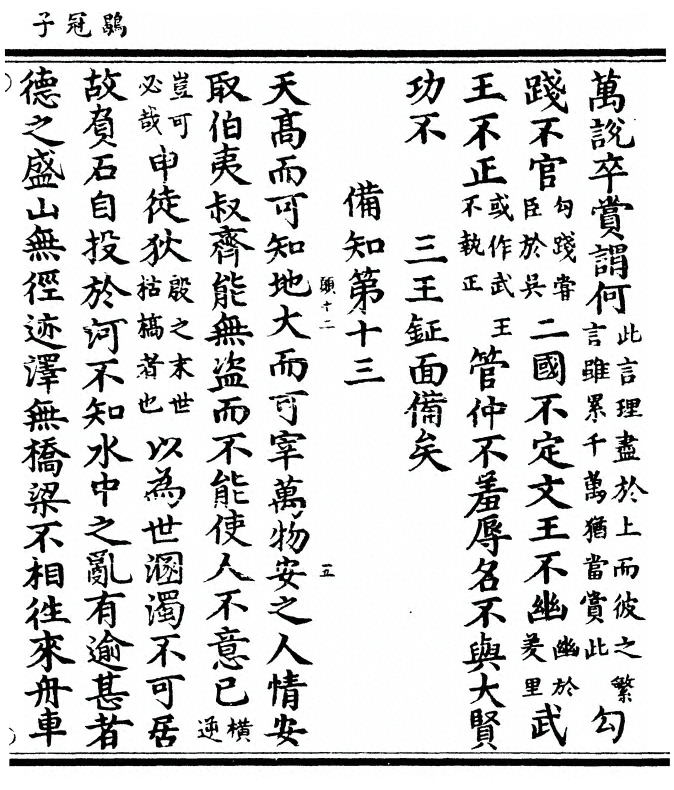 鶡冠子
萬說卒賞謂何此言理盡於上而彼之繁言雖累千萬猶當賞此勾
踐不官勾踐嘗臣於吳二國不定文王不幽幽於羑里武
王不正或作武王不執正管仲不羞辱名不與大賢
功不 三王鉦面備矣
備知第十三
十二
五
天高而可知地大而可宰萬物安之人情安
取伯夷叔齊能無盜而不能使人不意已橫逆
豈可必哉申徒狄殷之末世枯槁者也以為世溷濁不可居
故負石自投於河不知水中之亂有逾甚者
德之盛山無徑迹澤無橋梁不相徃來舟車